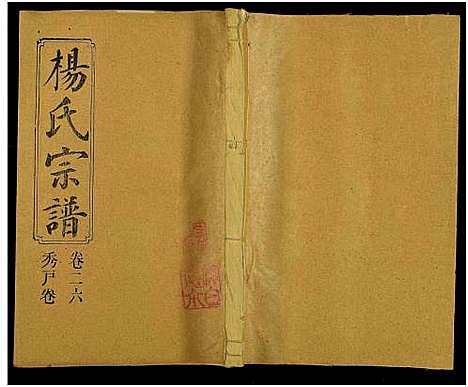 楊氏宗譜
卷二六
秀戸卷